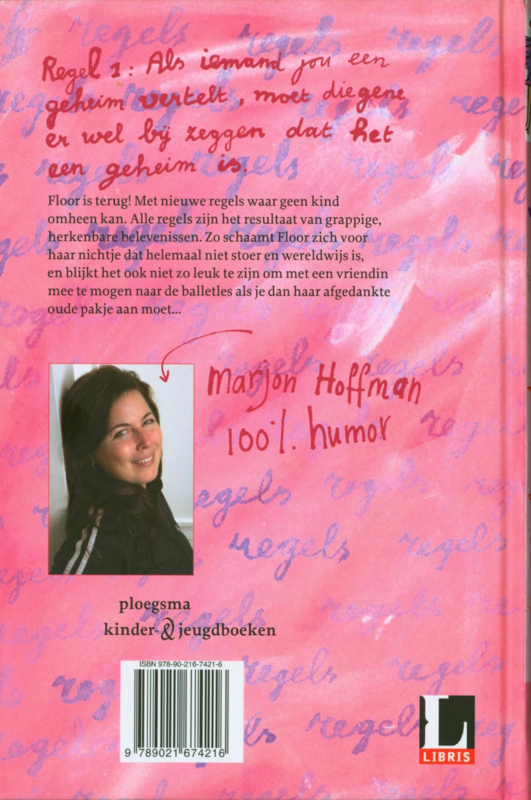 regels
Regel 1: Als iemand jou een
geheim vertelt, moet diegene
er wel bij zeggen dat het
een geheim is.
Floor is terug! Met nieuwe regels waar geen kind
omheen kan. Alle regels zijn het resultaat van grappige,
herkenbare belevenissen. Zo schaamt Floor zich voor
haar nichtje dat helemaal niet stoer en wereldwijs is,
en blijkt het ook niet zo leuk te zijn om met een vriendin
mee te mogen naar de balletles als je dan haar afgedankte
oude pakje aan moet...
regels
Marjon Hoffman
100% humor
regels
egels
regels
regels
ploegsma
kinder & jeugdboeken
ISBN 978-90-216-7421-6
9 789021 674216
regels
regels
L
LIBRIS